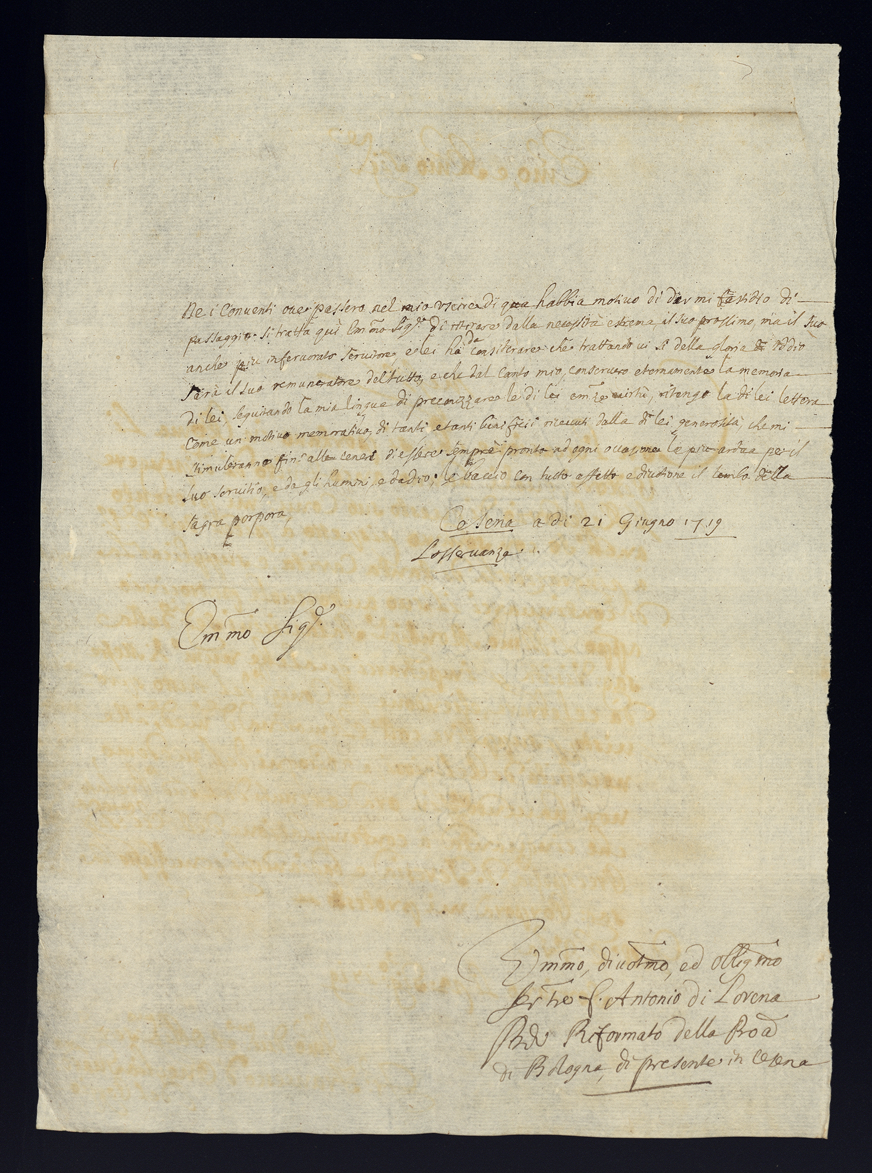 Ne i Conventi over passero nel mio uscire di qua habbia motivo di dar mi fastidio di
passaggio. Si tratta quì Em̄mo Sig.r di ritirare dalla necessità estrema, il suo prossimo, ma il suo
anche più infervorato servitore, e lei ha da considerare che trattandovi si della gloria di Iddio
sarà il suo remuneratore del tutto, e che dal Canto mio, conservero eternamente la memoria
di lei, seguitando la mia lingua di preconizzare le di lei virtù, ritengo la di lei lettera
come un motivo memorativo, di tanti, e tanti beneficii ricevuti dalla di lei generosità, che mi
stimuleranno fin' alle ceneri di essere sempre pronto ad ogni occasione la più ardua per il
suo servitio, e da gli humini, e da dio; le baccio con tutto affetto e divotione il lembo della
sagra porpora,
Cesena a di 21 Giugno 1719
L'osservanza.
Em̄mo Sig.r
Em̄mo, divotmo, ed obligmo
F. Antonio di Lorena
Riformato della
di Bologna, di presente in Cesena